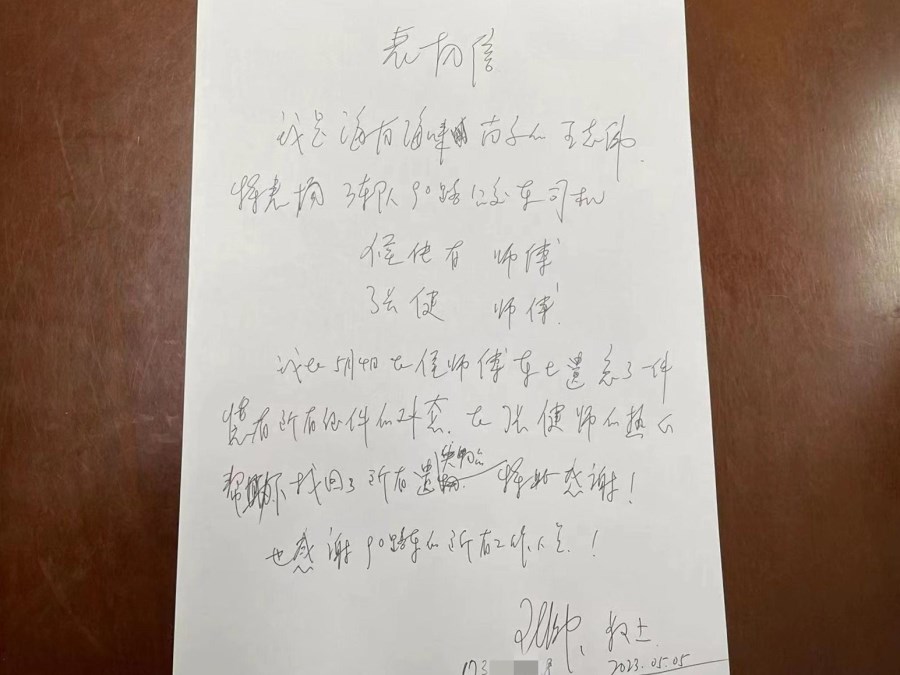 表扬信
我是海
特表扬 3车队90路公交车司机
师傅
张健 师傅
我在5月4日在崔师傅车上遗忘了一件
装有所有证件的外套. 在张健师的热心
帮 下找回了所有遗失物品. 特此感谢!
也感谢90路车的所有工作人员.!
敬上
173
2023.05.05